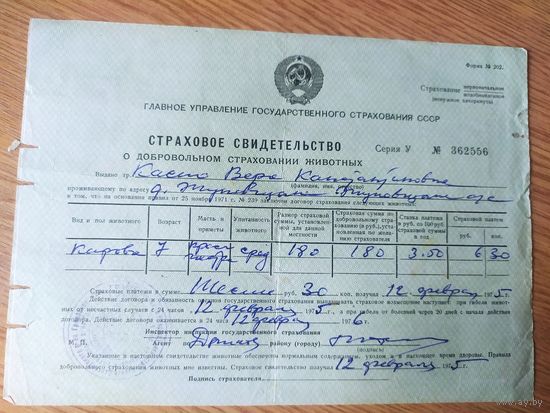 Форма № 202.
Страхование первоначальное
возобновлённое
(ненужное зачеркнуть)
ГЛАВНОЕ УПРАВЛЕНИЕ ГОСУДАРСТВЕННОГО СТРАХОВАНИЯ СССР
СТРАХОВОЕ СВИДЕТЕЛЬСТВО
Серия У № 362556
О ДОБРОВОЛЬНОМ СТРАХОВАНИИ ЖИВОТНЫХ
Выдано гр. Вере Константиновне
(фамилия, имя, отчество)
проживающему по адресу д.
в том, что на основании правил от 25 ноября 1971 г. № 239 заключен договор страхования следующих животных:
Вид и пол животного Возраст Масть и приметы Упитанность животного Размер страховой суммы, установленной для данной местности Страховая сумма по добровольному страхованию (в руб.), установленная по желанию страхователя Ставка платежа в руб. со 100 руб. страховой суммы в год Страховой платеж
руб. коп.
Корова 7 сред 180 180 3.50 6 30
Страховые платежи в сумме Шесть руб. 30 коп. получил 12 февраля 1975 г.
Действие договора и обязанность органов государственного страхования выплачивать страховое возмещение наступает: при гибели животных
от несчастных случаев в 24 часа 12 февраля 1975 г., а при гибели от болезней через 20 дней с начала действия
договора. Действие договора оканчивается в 24 часа 12 февраля 1976 г.
Инспектор инспекции государственного страхования
М. П. Агент району (городу)
(подпись)
Указанные в настоящем свидетельстве животные обеспечены нормальным содержанием, уходом и в настоящее время здоровы. Правила
добровольного страхования животных мне известны. Страховое свидетельство получил 12 февраля 1975 г.
Подпись страхователя
www.ay.by